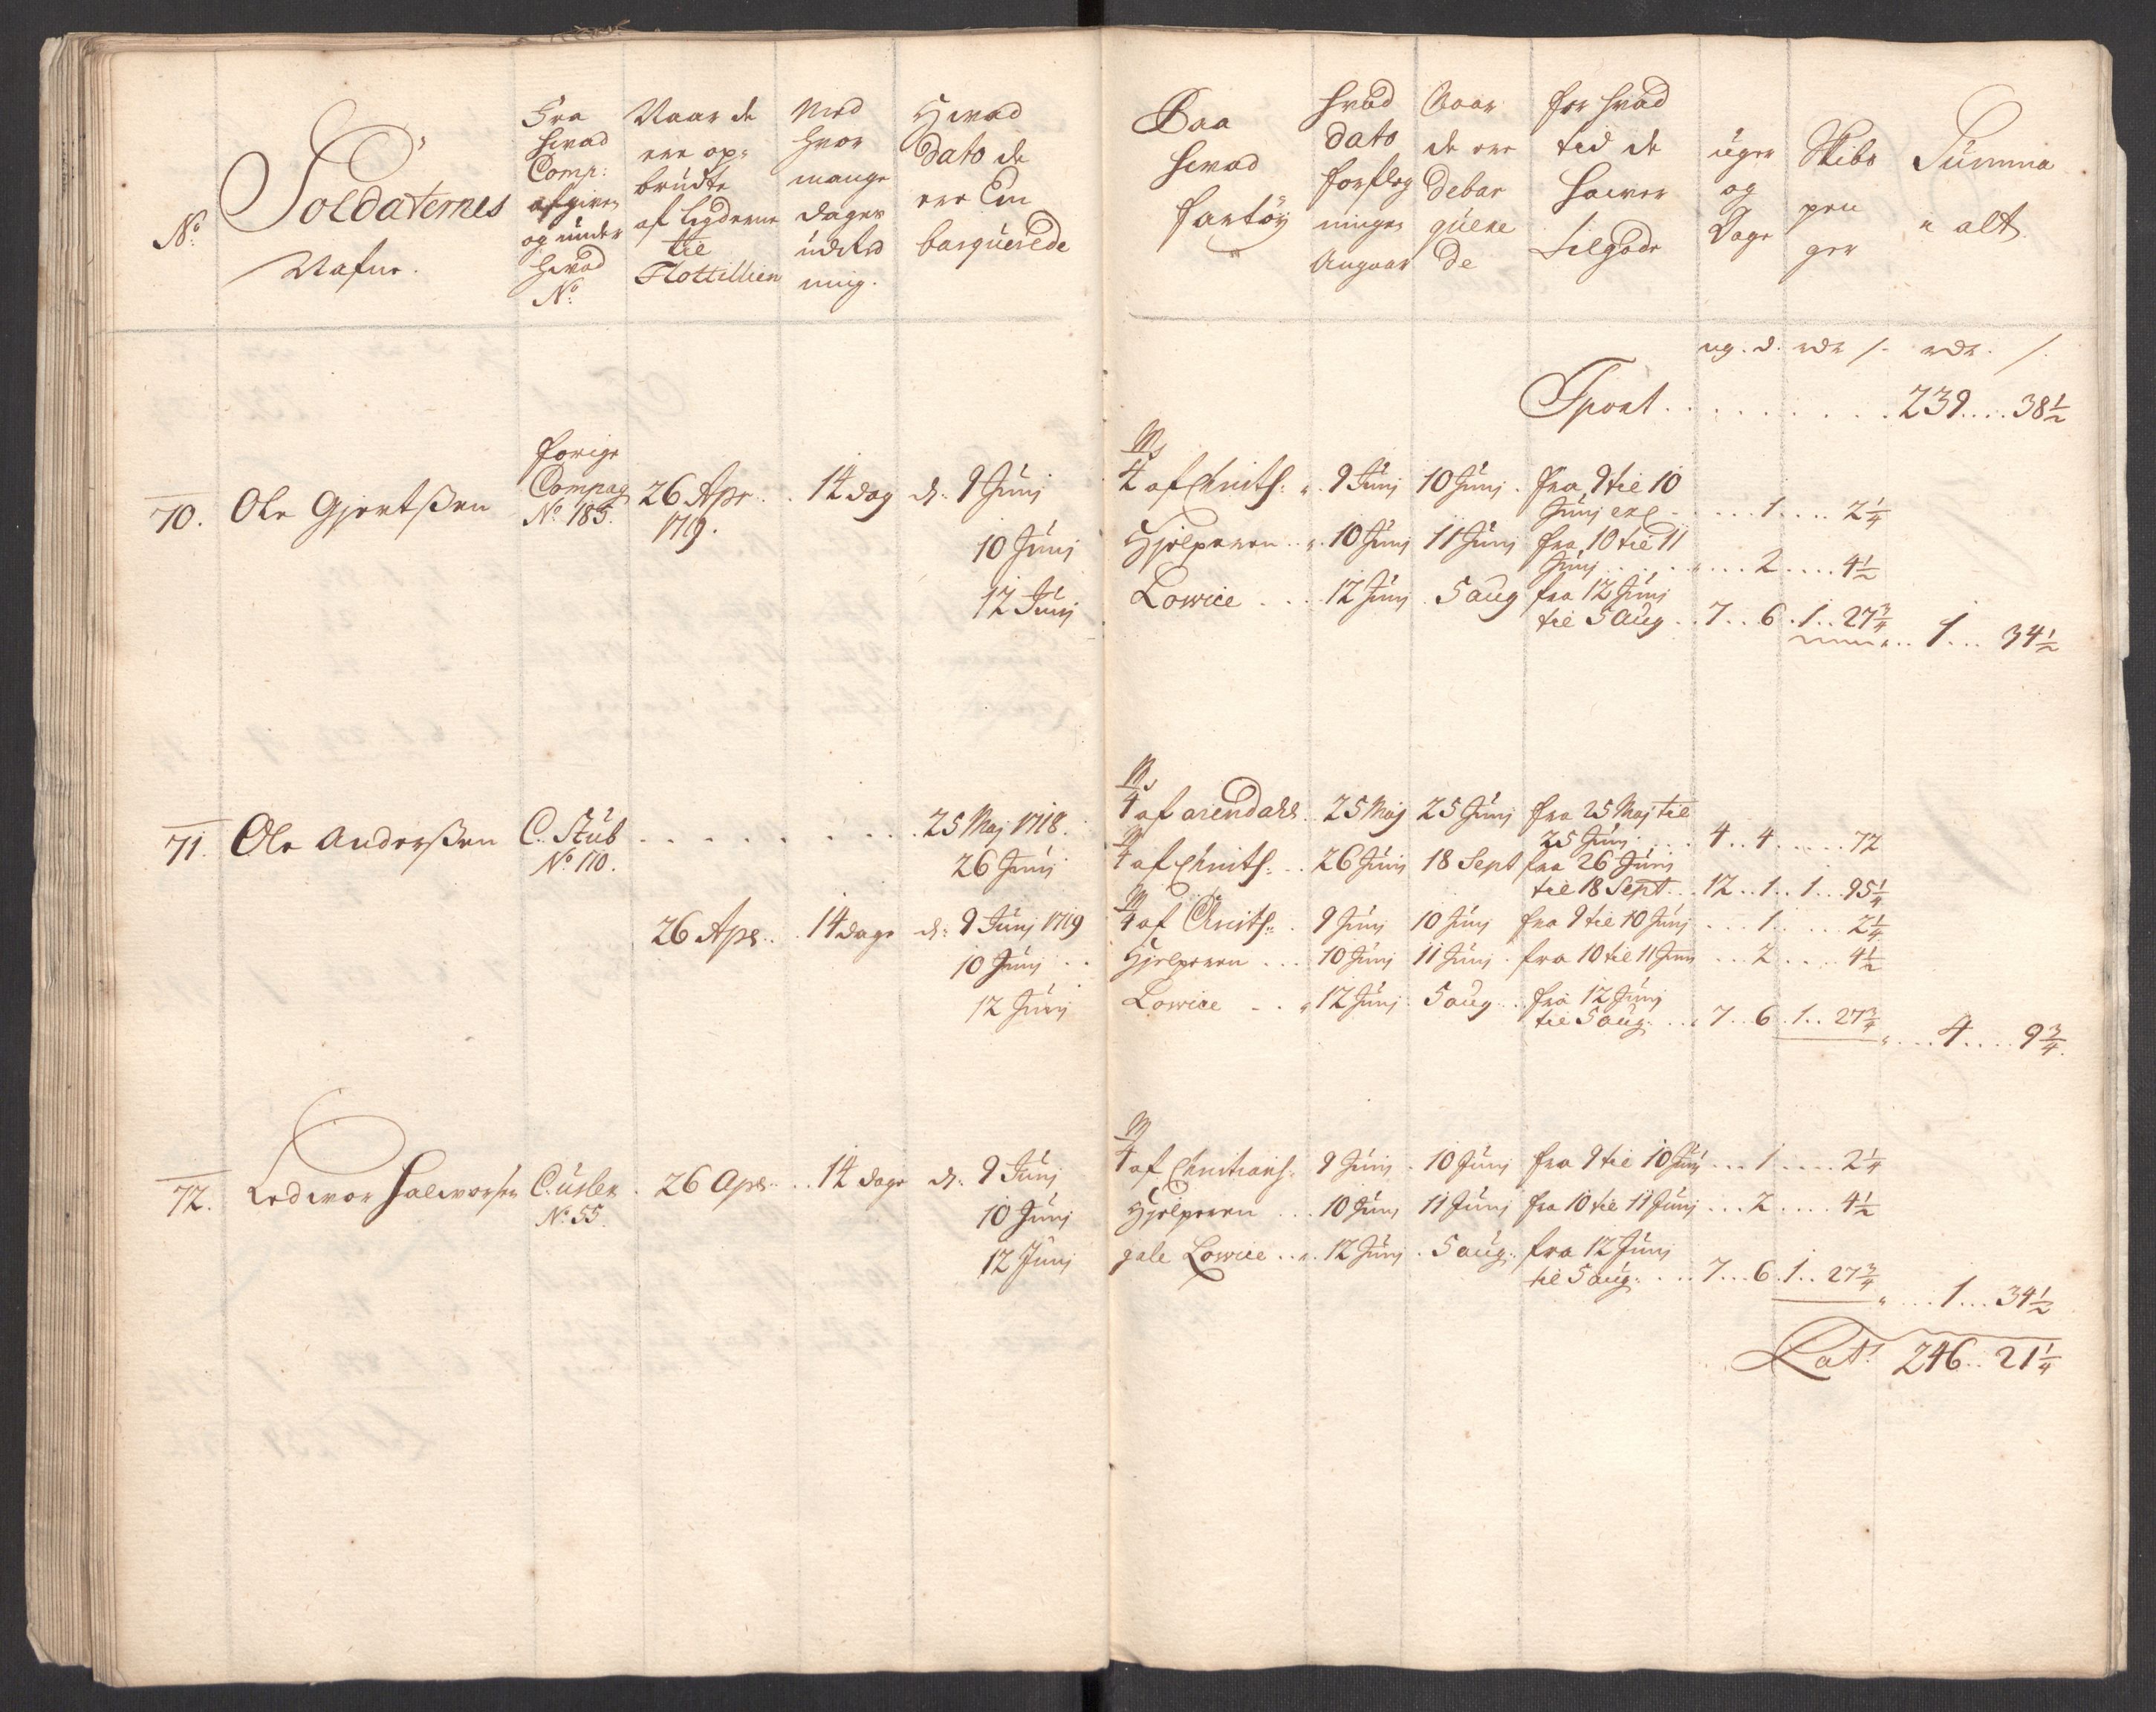 No
Soldaternes
Nafne.
Fra
hwad
Comp:
afgiven
og under
hwad
No
Naar de
ere op-
brudte
af Liyderne
til
Flottillien
Med
hvor
mange
dages
udred
ning.
Hwad
Dato de
ere Em
barquerede
Paa
hwad
fartöy
Hvad
dato
forpleg
ninges
Angaar
Naar
de ere
debar
quere
de
for hvad
tid de
hawer
tilgode
uger
og
Dage
Skibs
pen
ger
Summa
alt
ug. d. rdr / rdr. /
Tport . . . . . . . . . 239 . . . 38 1/2
70. Ole Gjertssen forige Compag No 185. 26 Apr. 1719. 14 dag d: 9 Junj 4 af Christ: 9 Junj 10 Junj fra 9 til 10
Junj exl . . . 1 . . . 2 1/4
10 Junj Hjelperen 10 Junj 11 Junj fra 10 til 11
Junj . . . 2 . . . 4 1/2
12 Junj Lowise 12 Junj 5 aug fra 12 Junj
til 5 Aug 7 . . 6 . 1 . . 27 3/4 . . 1 . . . 34 1/2
71. Ole Anderssen C. Stub No 110. . . . . . 25 Maj 1718. 4 af arendahl 25 Maj 25 Junj fra 25 Maj til
25 Junj . . 4 . . 4 . . . . 72
26 Junj 4 af Christ: 26 Junj 18 Sept fra 26 Junj
til 18 Sept . . 12 . . 1 . . 1 . . 95 1/4
26 Apr. 14 dage d: 9 Junj 1719 4 af Christ: 9 Junj 10 Junj fra 9 til 10 Junj . . . 1 . . . 2 1/4
10 Junj Hjelperen 10 Junj 11 Junj fra 10 til 11 Junj . . . 2 . . . 4 1/2
12 Junj Lowise 12 Junj 5 aug fra 12 Junj
til 5 aug. 7 . . 6 . 1 . . 27 3/4 . . . 4 . . . 9 3/4
72. Ledwor Halworsen C. usler No 55. 26 Apr. 14 dage d: 9 Junj 4 af Christians: 9 Junj 10 Junj fra 9 til 10 Junj . . . 1 . . . 2 1/4
10 Junj Hjelperen 10 Junj 11 Junj fra 10 til 11 Junj . . . 2 . . . 4 1/2
12 Junj gale Lowise 12 Junj 5 aug. fra 12 Junj
til 5 aug. 7 . . 6 . 1 . . 27 3/4 . . . 1 . . . 34 1/2
Lat: 246 . . 21 1/4